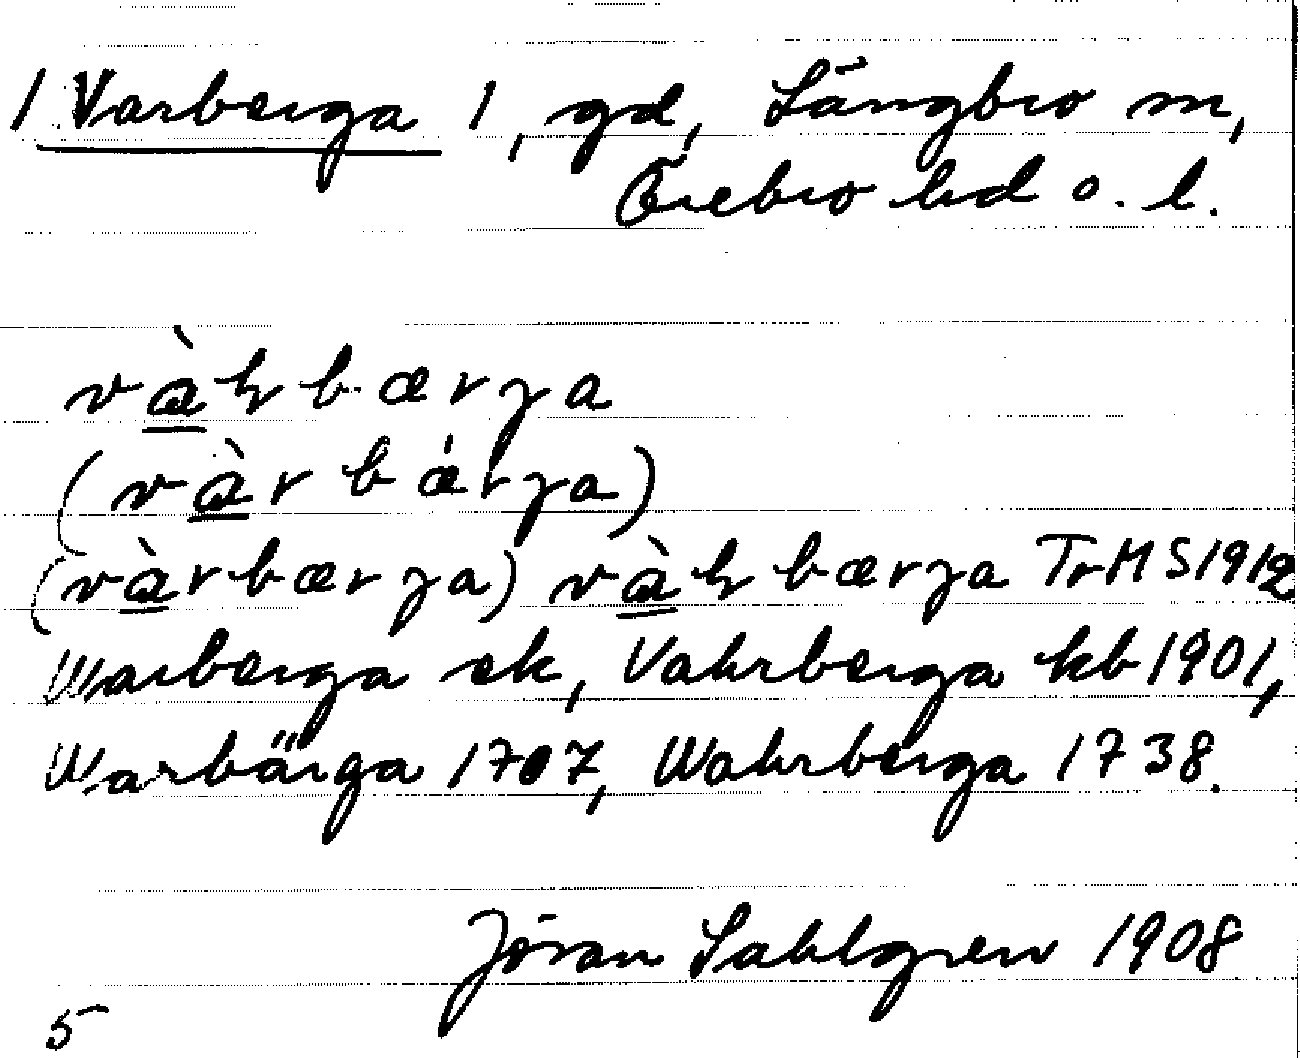 1 Varberga 1, gd, Längbro m,
Örebro hd o. l.
và̲ɦbærga
(và̲rbǽrga)
(và̲rbærga) và̲ɦbærga TrHS1912
Warberga ek, Vahrberga kb 1901,
Warbärga 1707, Wahrberga 1738.
Jöran Sahlgren 1908
5